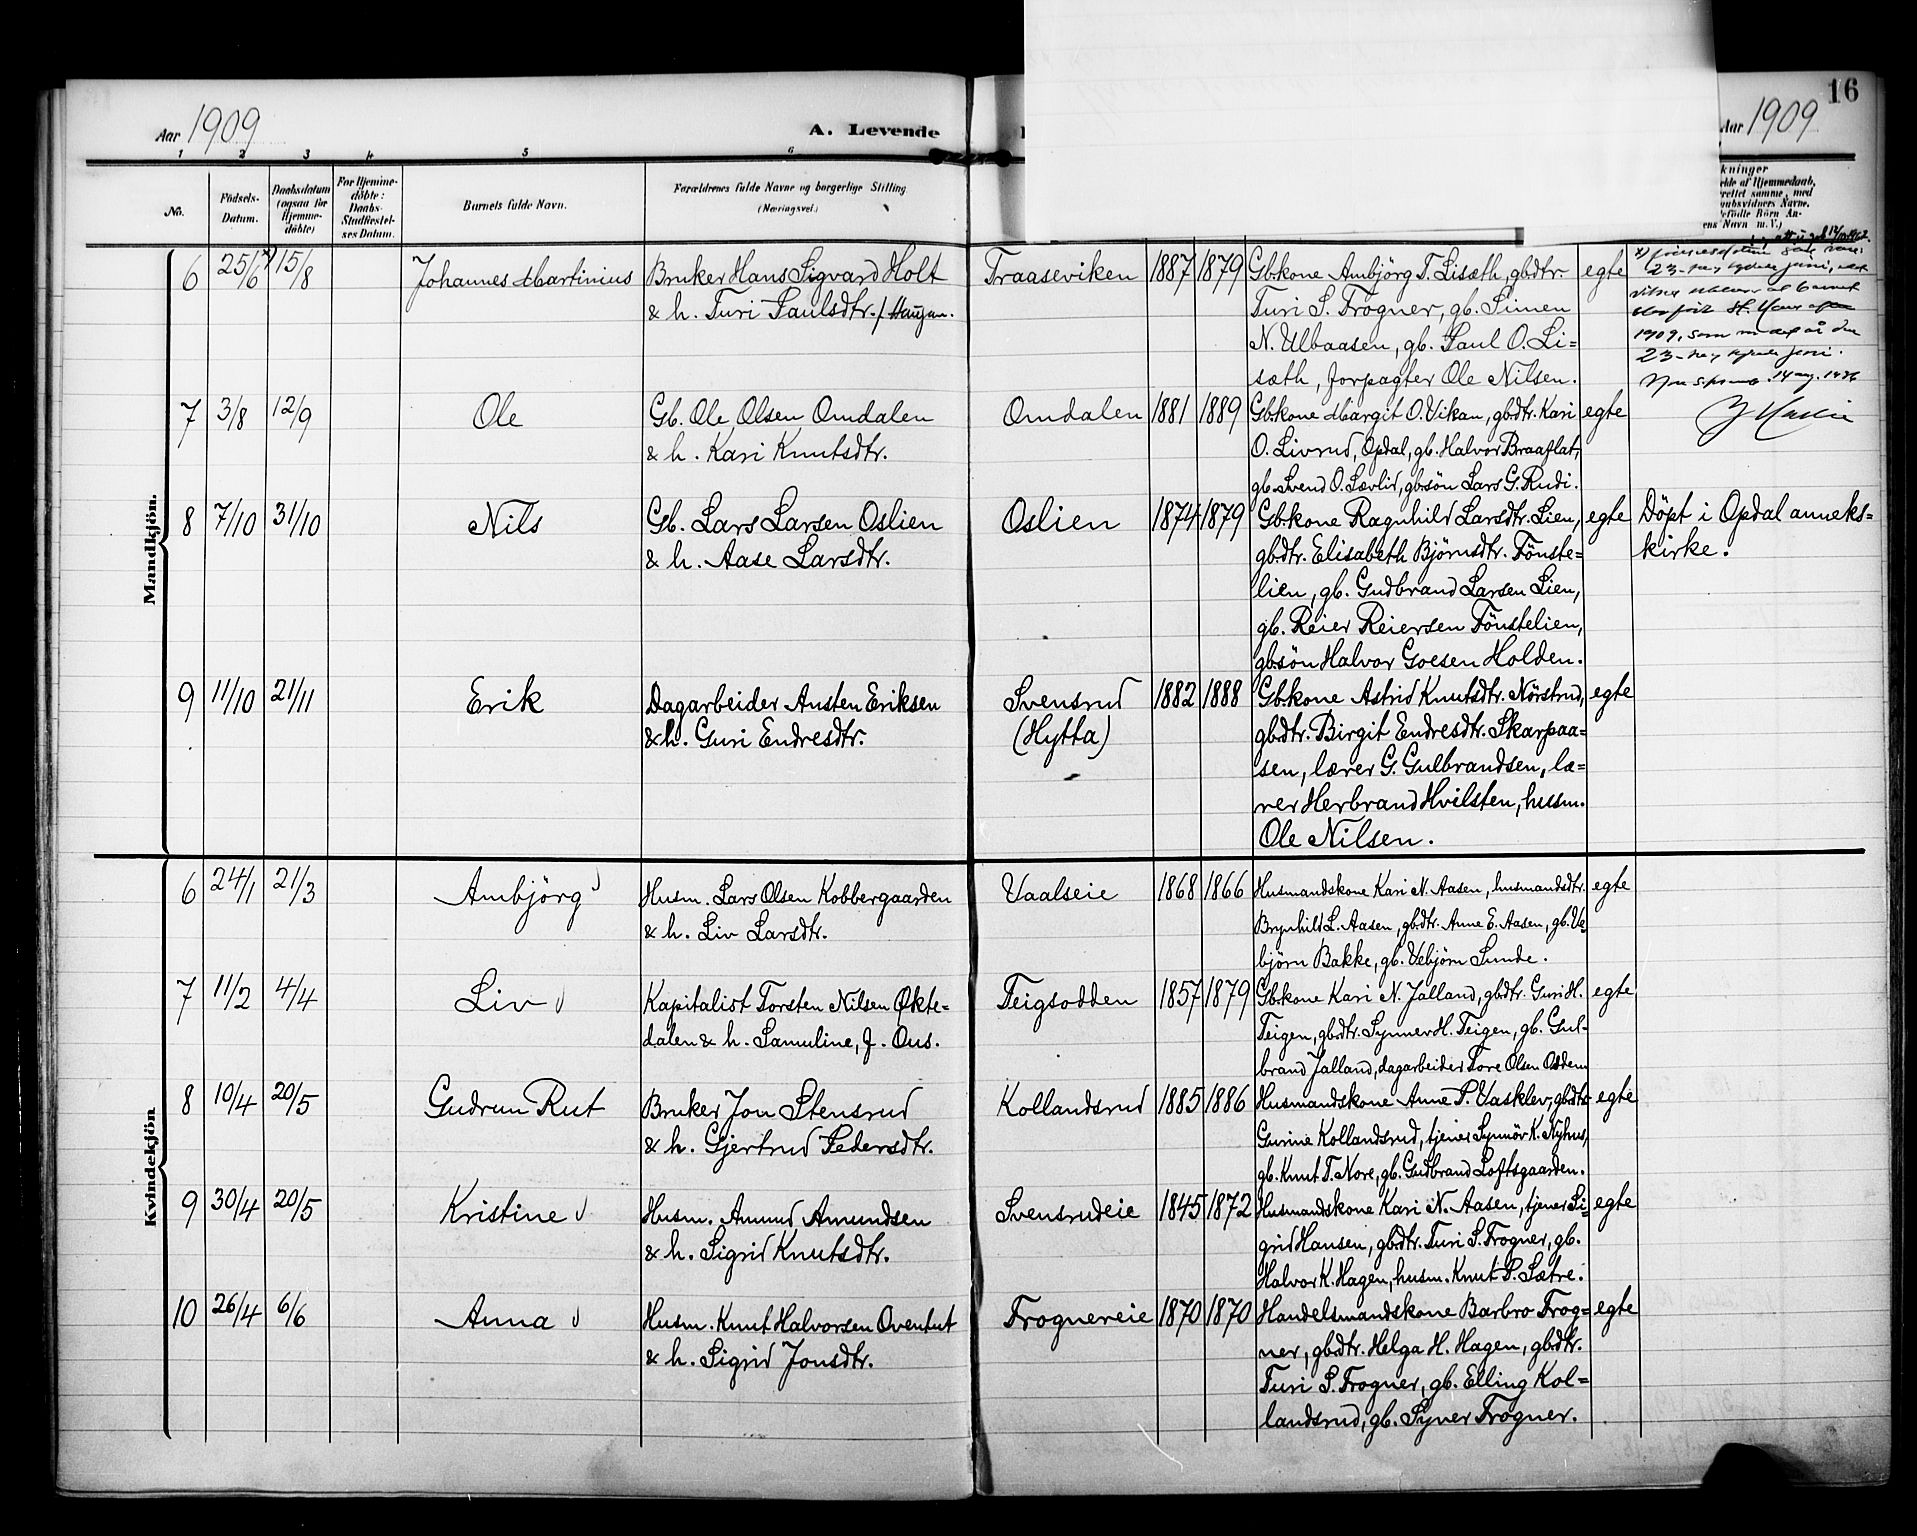 16
Aar 1909
A. Levende
Aar 1909
1 2 3 4 5 6
No.
Födsels-Datum.
Daabsdatum (ogsaa för Hjemme-döbte)
For Hjemme-döbte: Daabs-Stadfæstel-ses Datum.
Barnets fulde Navn.
Forældrenes fulde Navne og borgerlige Stilling (Næringsvei.)
Mandkjön.
6 25/6 x) 15/8 Johannes Martinius Bruker Hans Sigvard Holt Traaseviken 1887 1879 Gbkone Ambjörg T. Lisæth, gbdtr. egte
& h. Turi Paulsdtr. / Haugan. Turi S. Frogner, gb. Simen
N. Ulbaasen, gb. Paul O. Li=
sæth, forpagter Ole Nilsen.
23
1909, som
23
7 3/8 12/9 Ole Gb. Ole Olsen Omdalen Omdalen 1881 1889 Gbkone Margit O. Vikan, gbdtr. Kari egte
& h. Kari Knutsdtr. O. Livrud, Opdal, gb. Halvor Braaflat,
gb. Svend O. Sævlid, gbsön Lars G. Rudi.
8 7/10 31/10 Nils Gb. Lars Larsen Oslien Oslien 1874 1879 Gbkone Ragnhild Larsdtr. Lien, egte Döpt i Opdal anneks=
& h. Aase Larsdtr. gbdtr. Elisabeth Björnsdtr. Fönste= kirke.
lien, gb. Gudbrand Larsen Lien,
gb. Reier Reiersen Fönstelien,
gbsön Halvor Goesen Holden.
9 11/10 21/11 Erik Dagarbeider Austen Eriksen Svensrud 1882 1888 Gbkone Astrid Knutsdtr. Nörstrud, egte
& h. Guri Endresdtr. (Hytta) gbdtr. Birgit Endresdtr. Skarpaa=
sen, lærer G. Gulbrandsen, læ=
rer Herbrand Hvilsten, husm.
Ole Nilsen.
Kvindekjön
6 24/1 21/3 Ambjörg Husm. Lars Olsen Kobbergaarden Vaalseie 1868 1866 Husmandskone Kari N. Aasen, husmandsdtr. egte
& h. Liv Larsdtr. Brynhild L. Aasen, gbdtr. Anne E. Aasen, gb. Ve
björn Bakke, gb. Vebjörn Sunde.
7 11/2 4/4 Liv Kapitalist Torsten Nilsen Økte= Teigsodden 1857 1879 Gbkone Kari N. Jalland, gbdtr. Guri H. egte
dalen & h. Samuline, J. Ous. Teigen, gbdtr. Synnev H. Teigen, gb. Gul-
brand Jalland, dagarbeider Tore Olsen Odden
8 10/4 20/5 Gudrun Rut Bruker Jon Stensrud Kollandsrud 1885 1886 Husmandskone Anne P. Vasklev, gbdtr. egte
& h. Gjertrud Pedersdtr. Gurine Kollandsrud, tjener Synnöv K. Nyhus,
gb. Knut T. Nore, gb. Gudbrand Loftsgaarden.
9 30/4 20/5 Kristine Husm. Amund Amundsen Svensrudeie 1845 1872 Husmandskone Kari N. Aasen, tjener Si= egte
& h. Sigrid Knutsdtr. grid Hansen, gbdtr. Turi S. Frogner, gb.
Halvor K. Hagen, husm. Knut P. Sætre.
10 26/4 6/6 Anna Husm. Knut Halvorsen Oventut Frognereie 1870 1870 Handelsmandskone Barbro Frog= egte
& h. Sigrid Jonsdtr. ner, gbdtr. Helga H. Hagen, gbdtr.
Turi S. Frogner, gb. Elling Kol=
landsrud, gb. Syver Frogner.